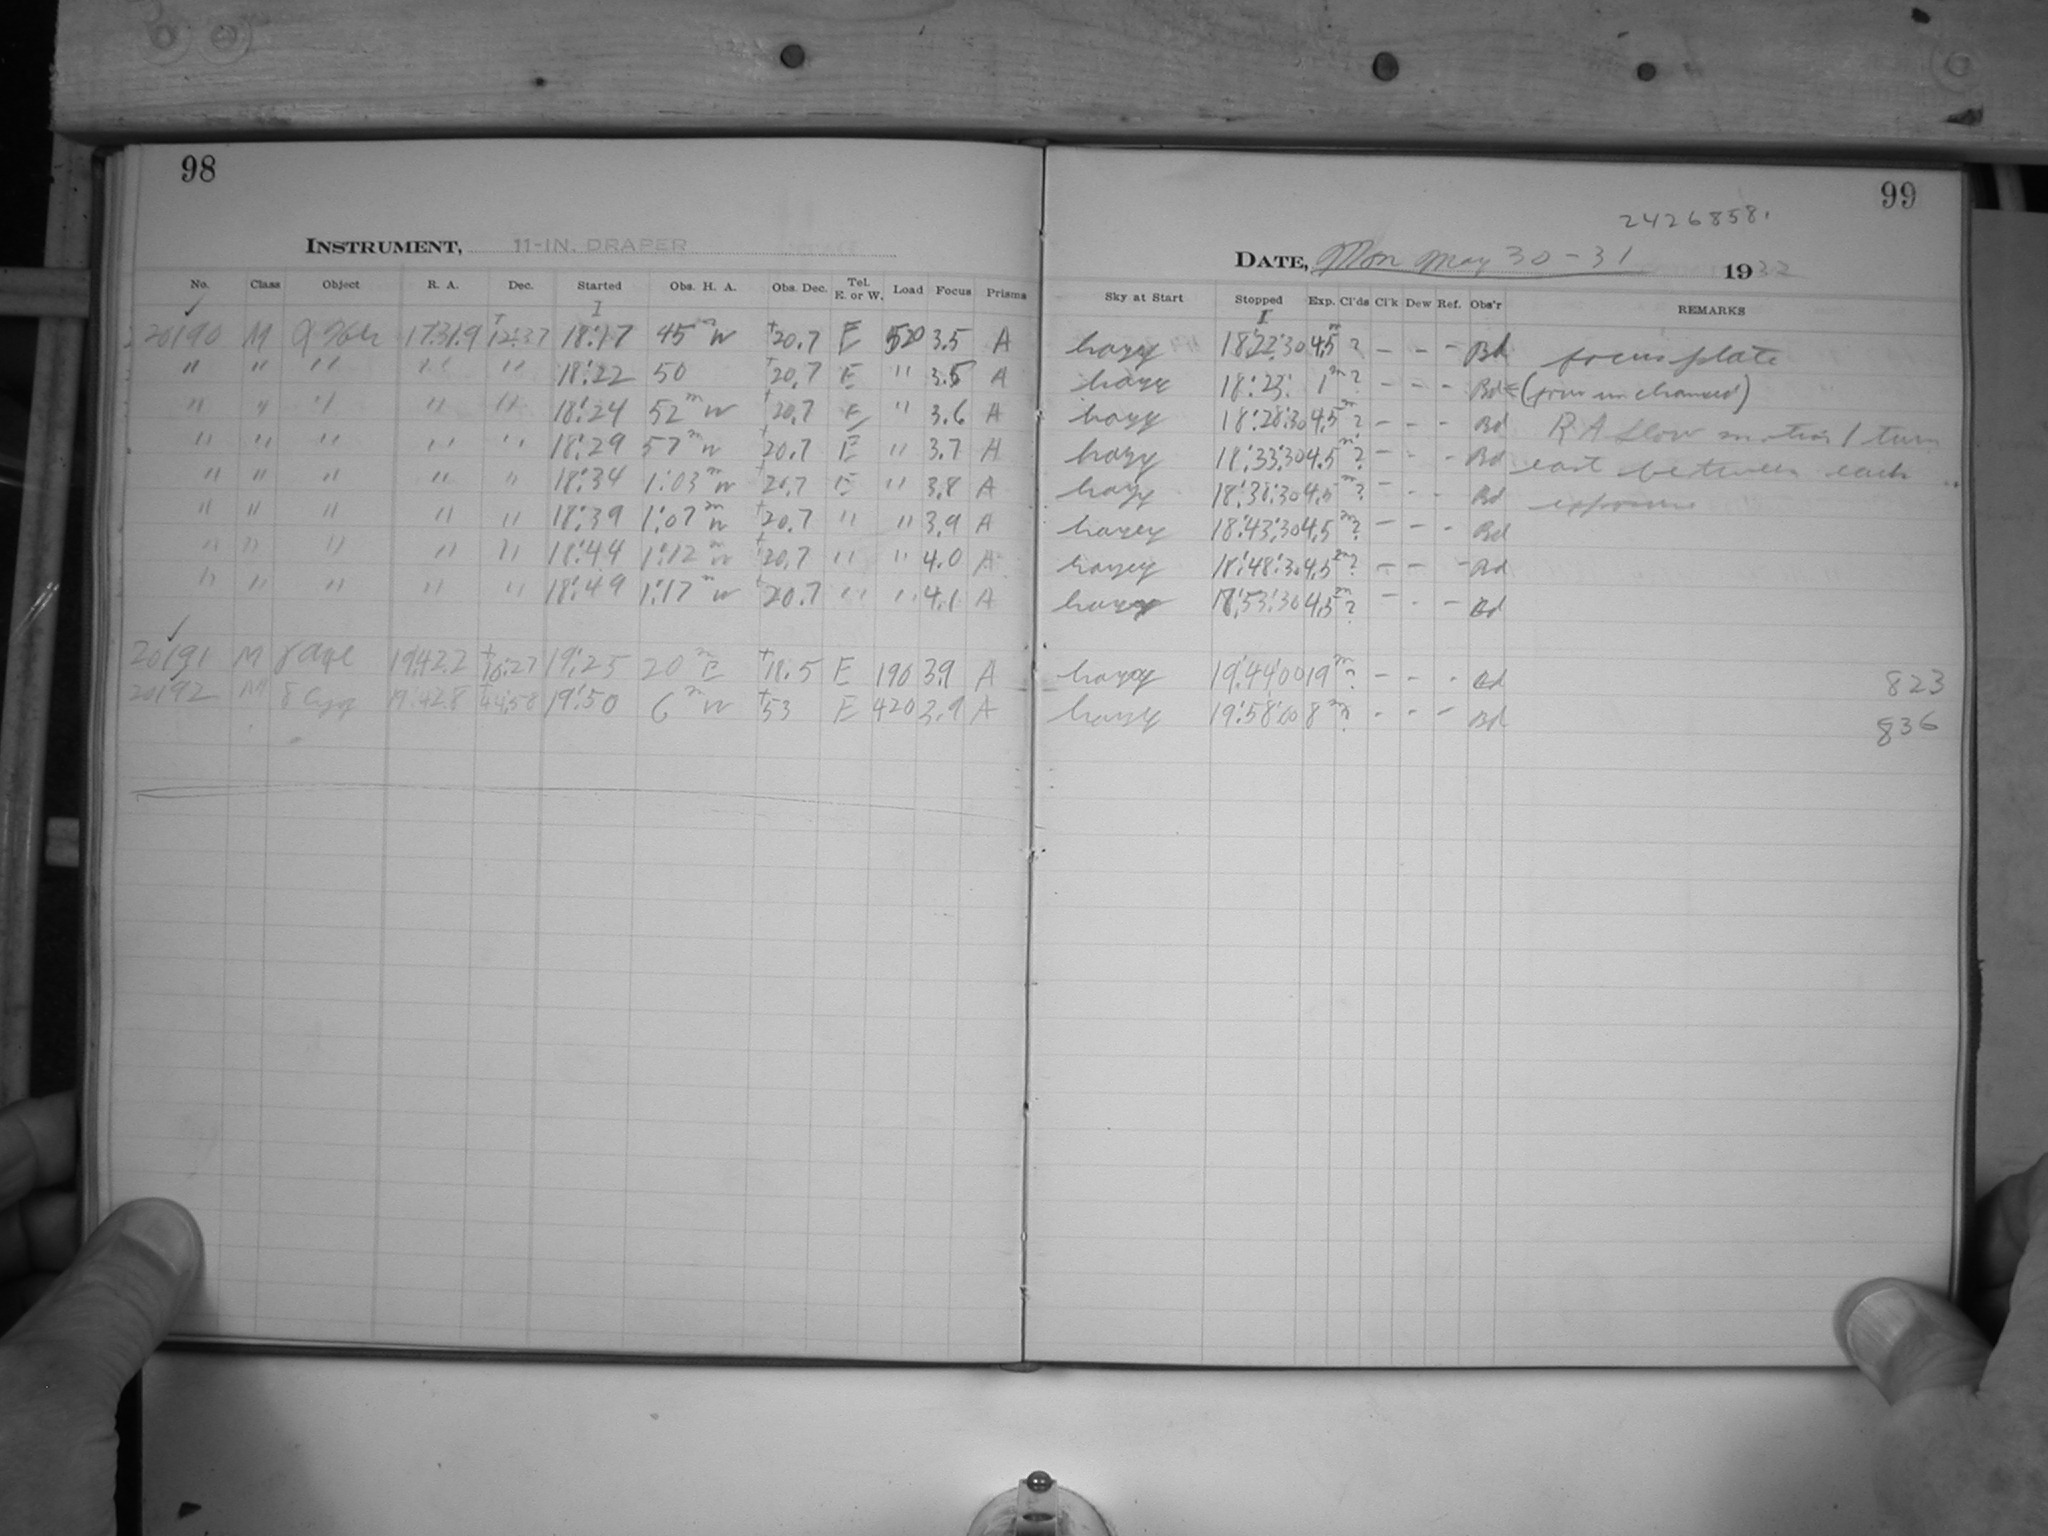 98
INSTRUMENT, 11-IN. DRAPER
No. Class Object R. A. Dec. Started Obs. H. A. Obs. Dec. Tel. E. or W. Load Focus Prisms
I
20190 M 17:31.9 +12:37 18:17 45 m W +20.7 E 520 3.5 A
" " " " " 18:22 50 +20.7 E " 3.5 A
" " " " " 18:24 52 m W +20.7 E " 3.6 A
" " " " " 18:29 57 m W +20.7 E " 3.7 A
" " " " " 18:34 1:03 m W +20.7 E " 3.8 A
" " " " " 18:39 1:07 m W +20.7 " " 3.9 A
" " " " " 18:44 1:12 m W +20.7 " " 4.0 A
" " " " " 18:49 1:17 m W +20.7 " " 4.1 A
20191 M γ Aql 19:42.2 +10:27 19:25 20 m E +18.5 E 190 3.9 A
20192 M δ Cyg 19:42.8 +44:58 19:50 6 m W +53 E 420 3.9 A
99
2426858.
DATE, Mon May 30-31 1932
Sky at Start Stopped Exp. Cl'ds Cl'k Dew Ref. Obs'r REMARKS
I
hazy 18:22:30 4.5 m ? - - - Bd focus plate
hazy 18:23: 1 m ? - - - Bd (focus unchanged)
hazy 18:28:30 4.5 m ? - - - Bd R A slow motion 1 turn
hazy 18:33:30 4.5 m ? - - - Bd east between each
hazy 18:38:30 4.5 m ? - - - Bd exposure
hazey 18:43:30 4.5 m ? - - - Bd
hazey 18:48:30 4.5 m ? - - - Bd
hazy 18:53:30 4.5 m ? - - - Bd
hazy 19:44:00 19 m ? - - - Bd 823
hazy 19:58:00 8 m ? - - - Bd 836